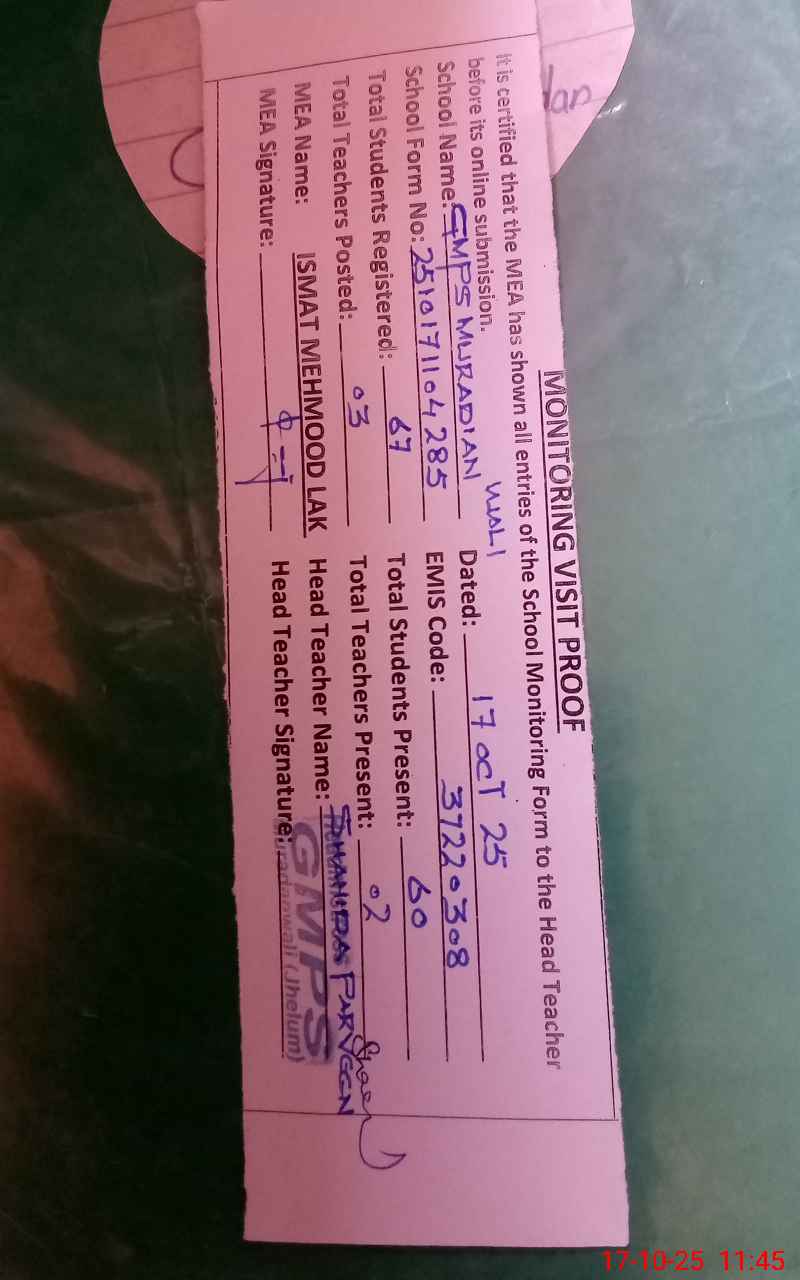 MONITORING VISIT PROOF
It is certified that the MEA has shown all entries of the School Monitoring Form to the Head Teacher
before its online submission.
School Name: GMPS MURADIAN WALI Dated: 17 OCT 25
School Form No: 2510171104285 EMIS Code: 37220308
Total Students Registered: 67 Total Students Present: 60
Total Teachers Posted: 03 Total Teachers Present: 02
MEA Name: ISMAT MEHMOOD LAK Head Teacher Name: PARVEEN
MEA Signature: Head Teacher Signature:
GMPS
(Jhelum)
17-10-25 11:45